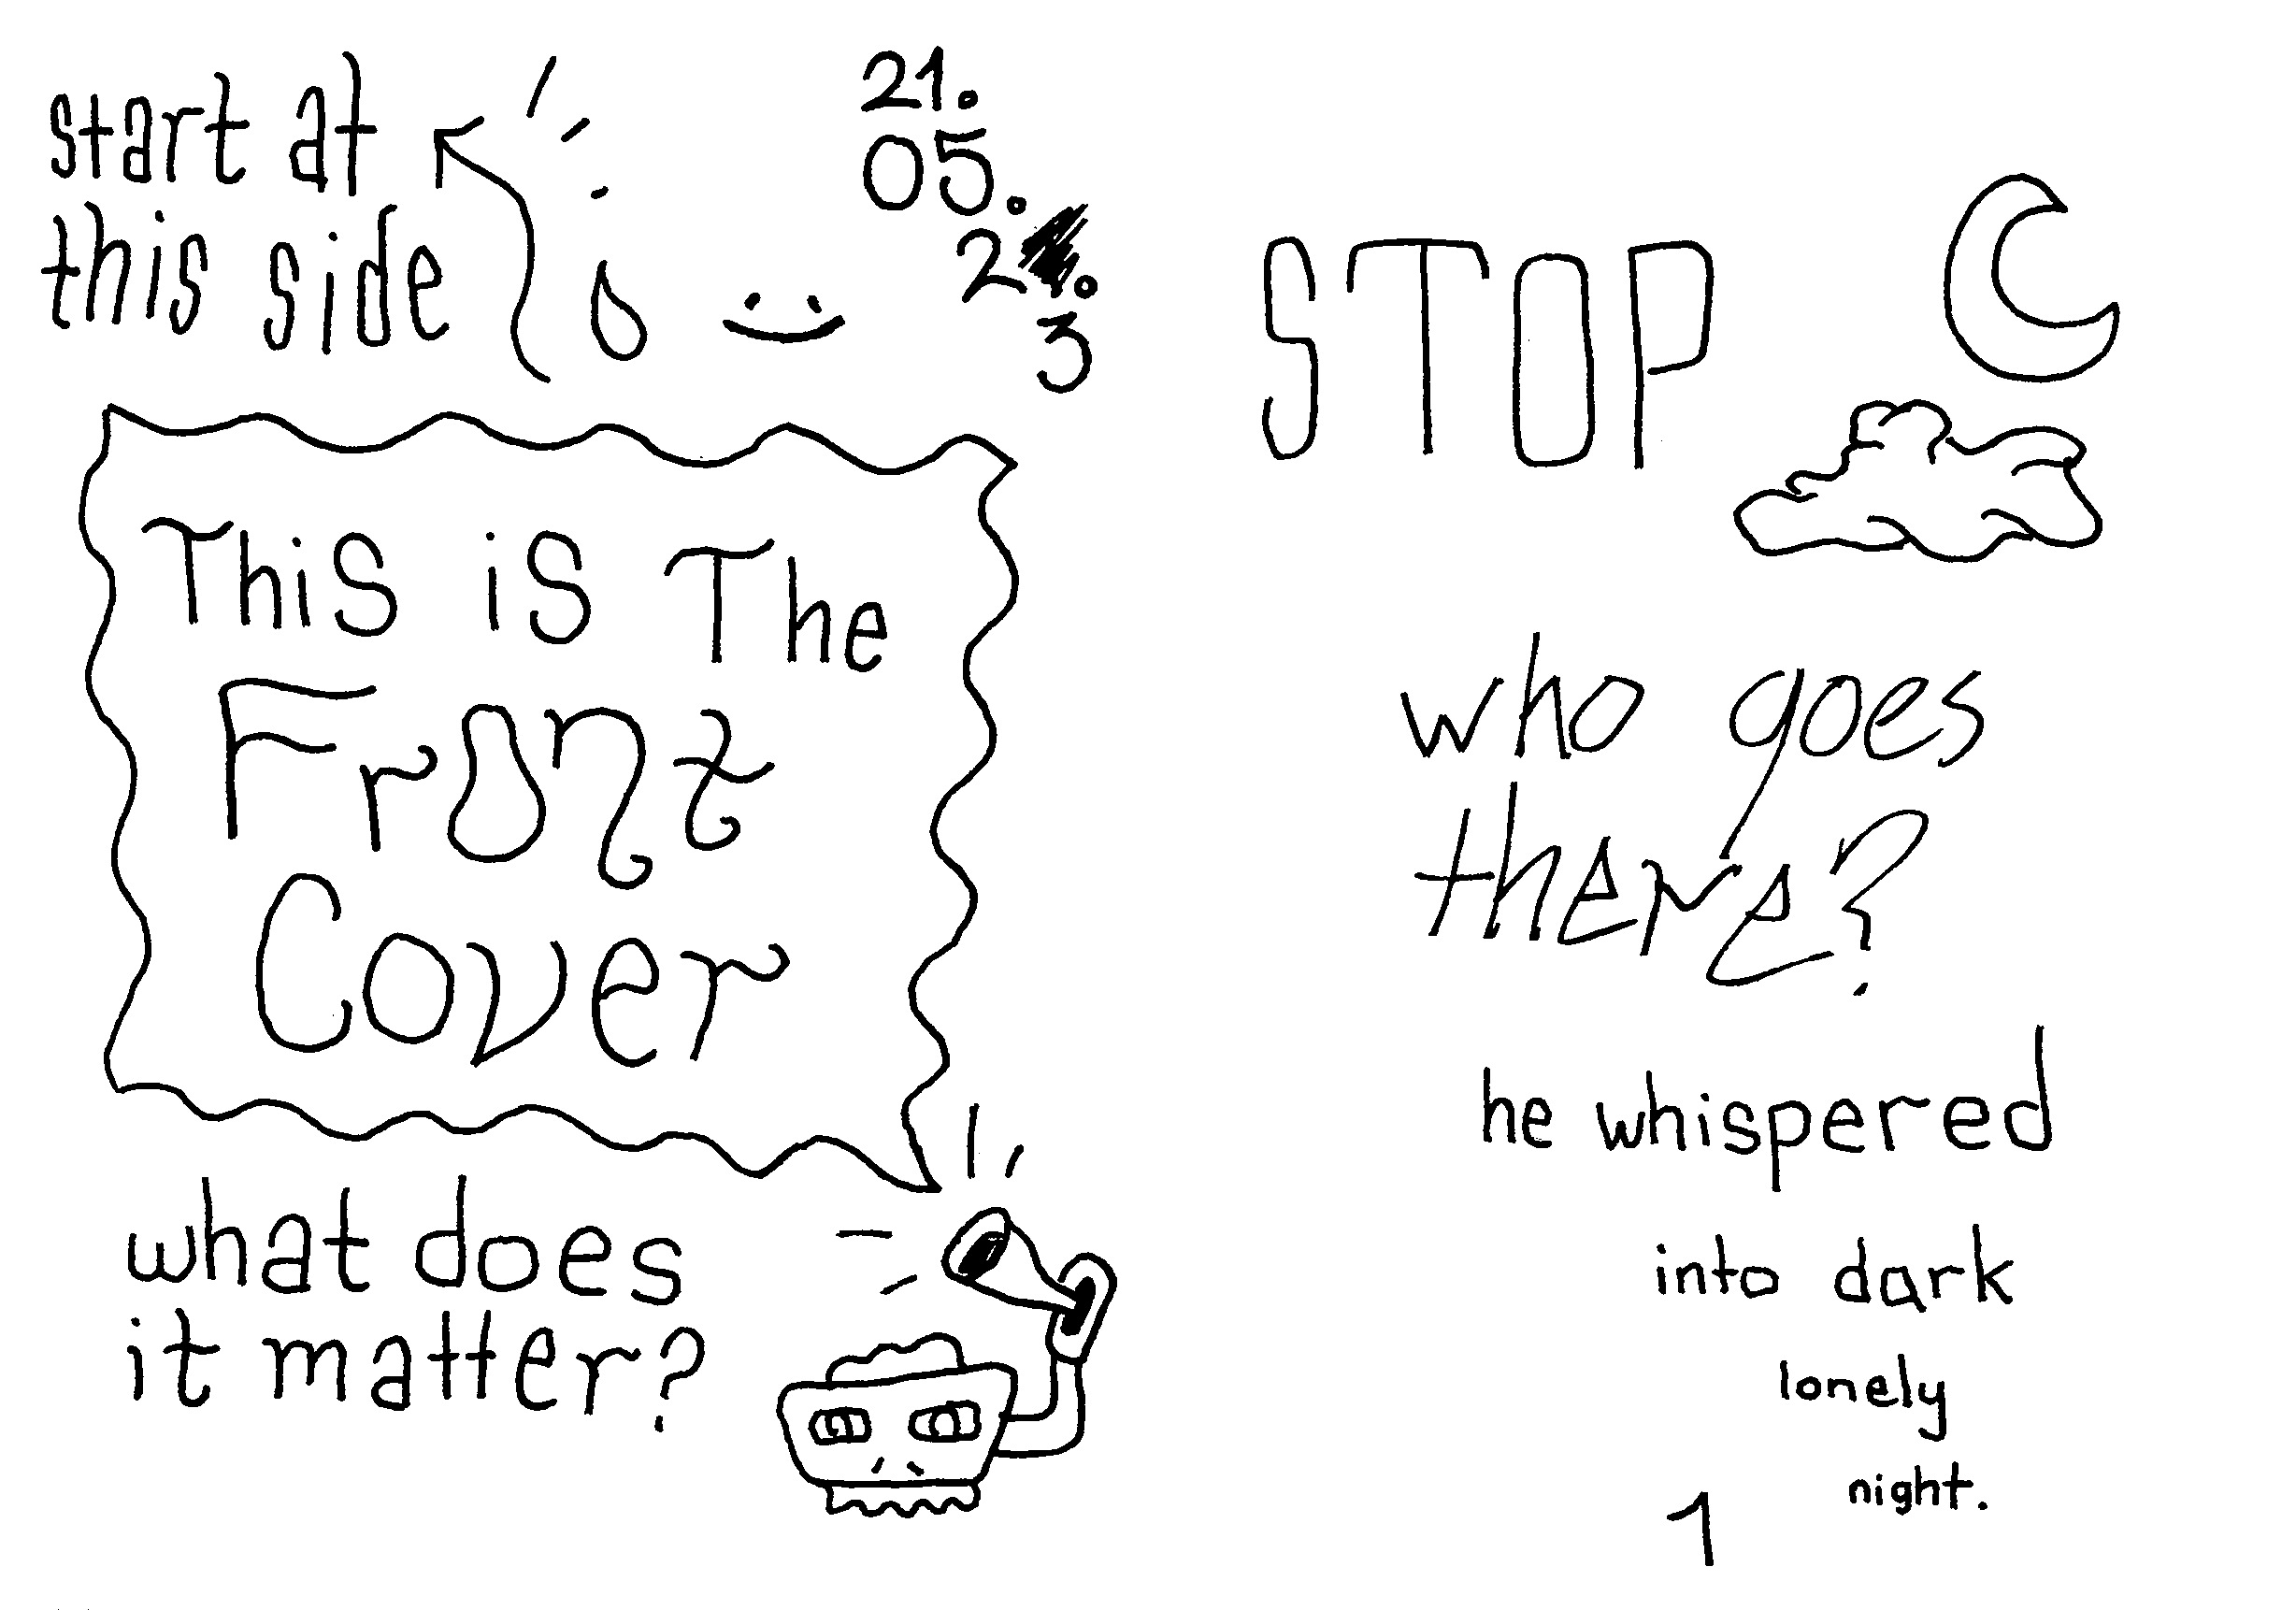 start at
this side
21.
05.
2.
3
This is The
Front
Cover
what does
it matter?
STOP
who goes
there?
he whispered
into dark
lonely
night.
1